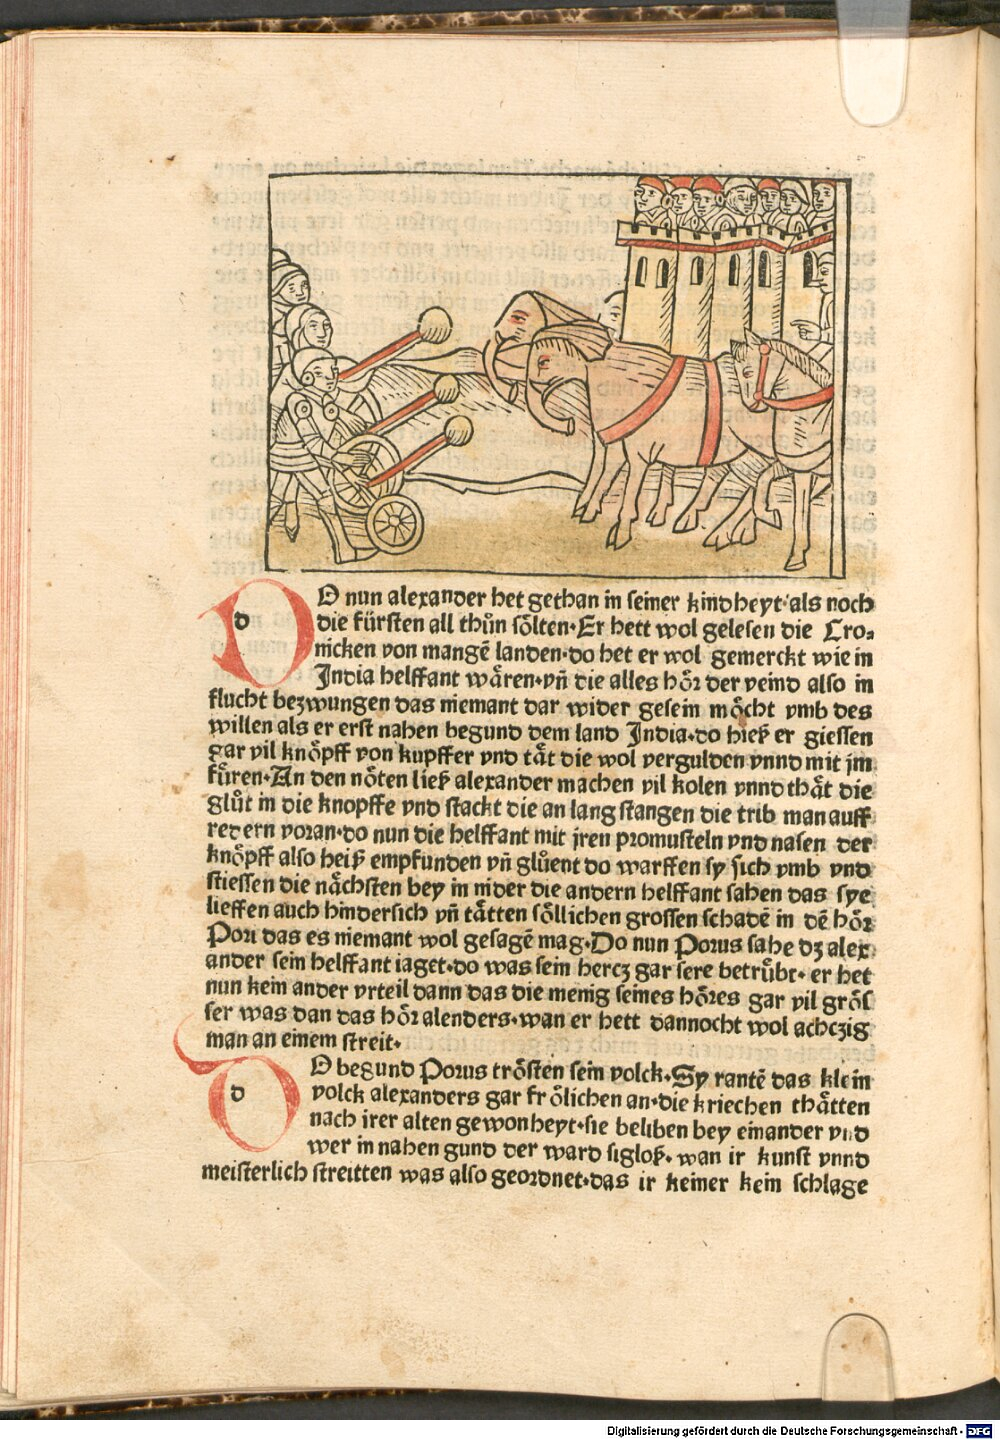 dO nun alexander het gethan in seiner kindheyt·als noch
die fürsten all thůn sőlten·Er hett wol gelesen die Cro⸗
nicken von mangē landen·do het er wol gemerckt wie in
India helffant wåren·vñ die alles hőr der veind also in
flucht bezwungen das niemant dar wider gesein mőcht vmb des
willen als er erst nahen begund dem land India·do hieß er giessen
gar vil knőpff von kupffer vnd tåt die wol vergulden vnnd mit jm
fůren·An den nőten ließ alexander machen vil kolen vnnd thåt die
glůt in die knopffe vnd stackt die an lang stangen die trib man auff
redern voran·do nun die helffant mit jren promusteln vnd nasen der
knőpff also heiß empfunden vñ glůent do warffen sy sich vmb vnd
stiessen die nåchsten bey in nider die andern helffant sahen das sye
lieffen auch hindersich vñ tåtten sőllichen grossen schadē in dē hőr
Pori das es niemant wol gesagē mag·Do nun Porus sahe dz alex
ander sein helffant iaget·do was sein hercz gar sere betrůbt· er het
nun kein ander vrteil dann das die menig seines hőres gar vil grős
ser was dan das hőr alenders·wan er hett dannocht wol achczig
man an einem streit·
dO begund Porus trősten sein volck·Sy rantē das klein
volck alexanders gar frőlichen an·die kriechen thåtten
nach irer alten gewonheyt·sie beliben bey einander vnd
wer in nahen gund der ward sigloß· wan ir kunst vnnd
meisterlich streitten was also geordnet·das ir keiner kein schlage
Digitalisierung gefördert durch die Deutsche Forschungsgemeinschaft - DFG